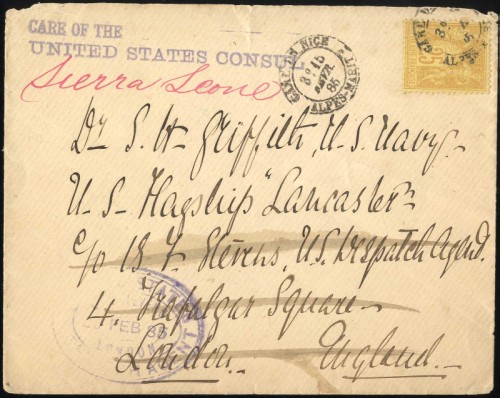 CARE OF THE
UNITED STATES CONSUL
Sierra Leone
GARE DE NICE
15
AVRIL
86
ALPES-MARIT
25
Dr S. W. Griffith, U. S. Navy.
U. S. Flagship "Lancaster"
c/o B. F. Stevens, U.S. Despatch Agent.
4, Trafalgar Square
London. England.
FEB
LONDON